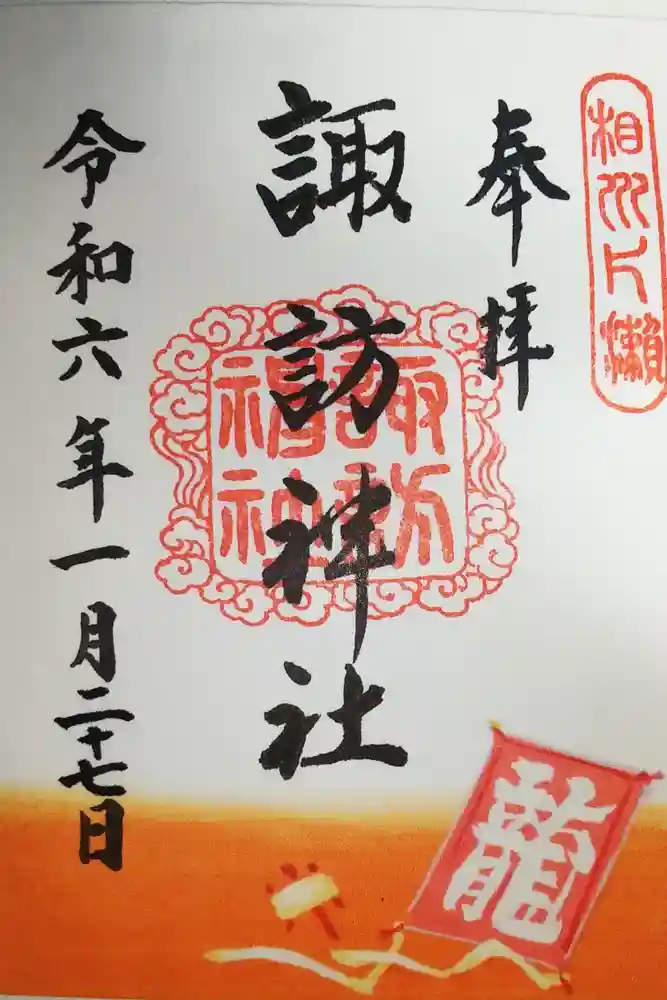 相州片瀬
奉拝
諏訪神社
諏訪
神社
令和六年一月二十七日
龍